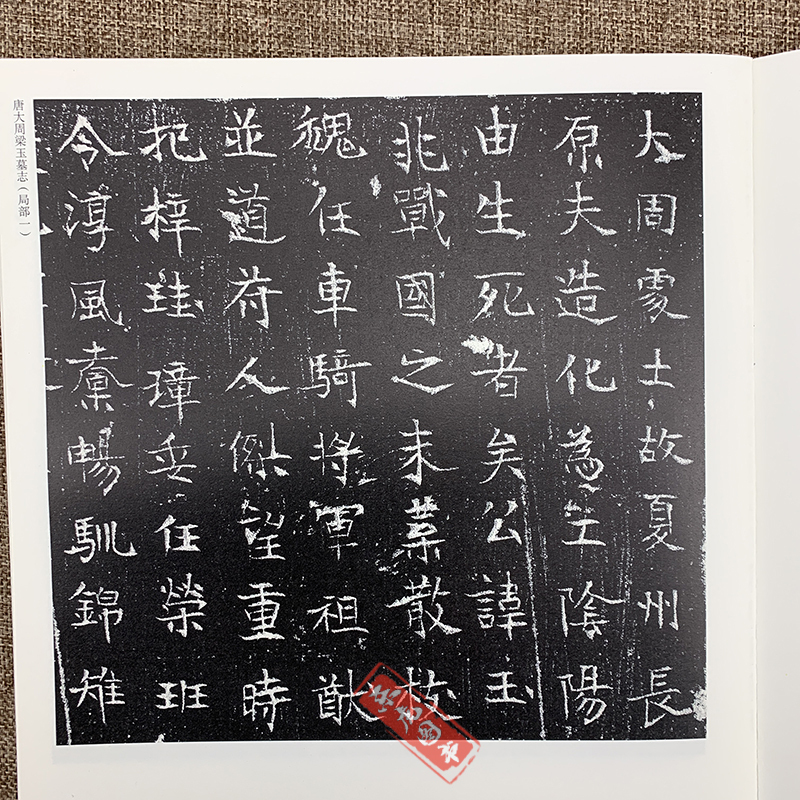 大周處士故夏州長
原夫造化為生陰陽
由生死者矣公諱玉
戰國之末業散枝
魏任車騎將軍祖猷
並道符人傑望重時
杞梓珪璋任榮班
令淳風稾暢馴錦雉
唐大周梁玉墓志（局部一）